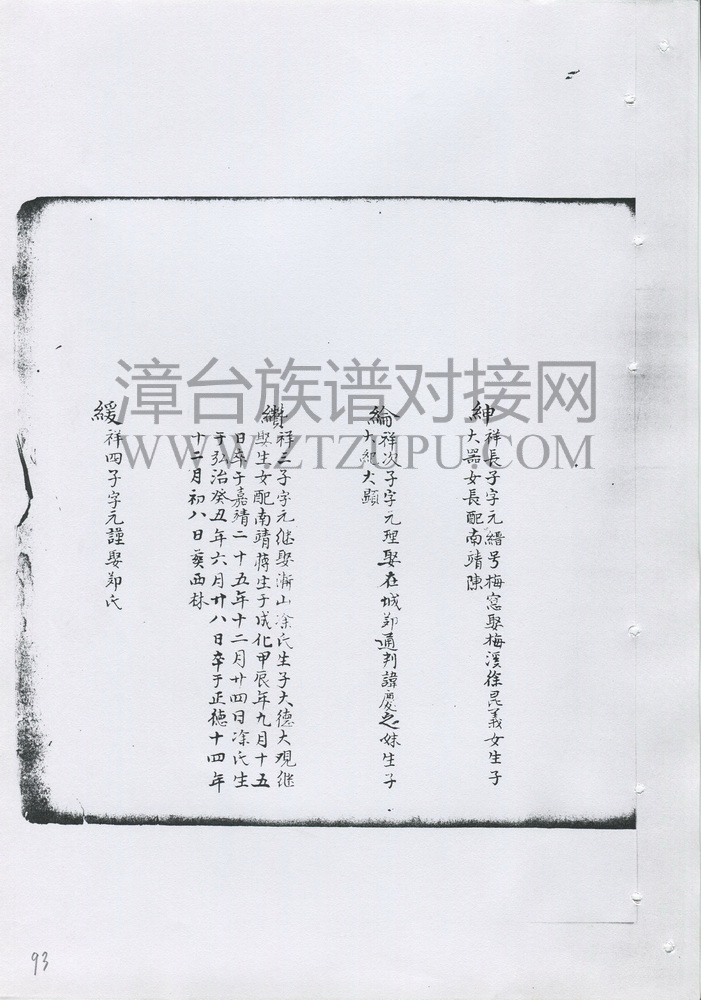 紳祥長子字元縉号梅窓娶梅溪徐昆義女生子
大器女長配南靖陳
綸祥次子字元理娶在城郑通判諱慶之妹生子
大紀大顯
纘祥三子字元继娶漸山凃氏生子大德大观继
娶生女配南靖蔣生于成化甲辰年九月十五
日卒于嘉靖二十五年十二月廿四日凃氏生
于弘治癸丑年六月廿八日卒于正德十四年
十二月初八日葵西林
緩祥四子字元謹娶郑氏
漳台族谱对接网
WWW.ZTZUPU.COM
93